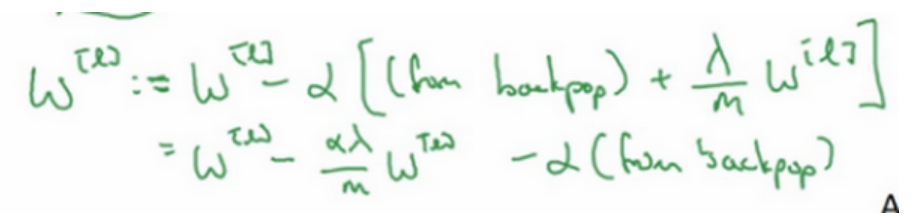 W^{[l]} := W^{[l]} - α [(from backpop) + λ/m W^{[l]}]
= W^{[l]} - αλ/m W^{[l]} - α (from backpop)
A